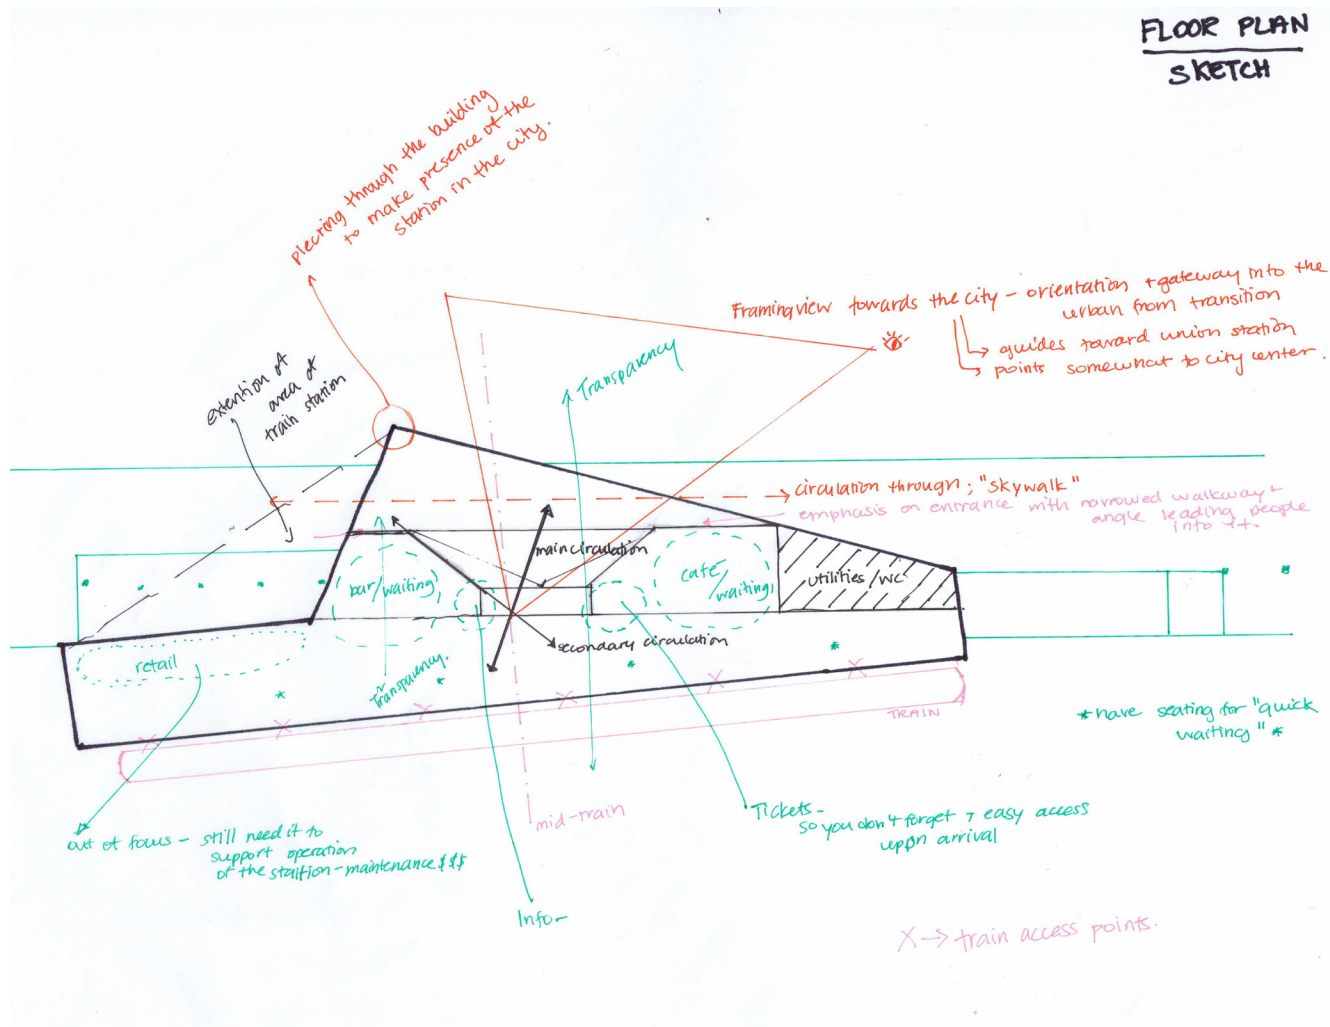 FLOOR PLAN
SKETCH
piecring through the building
to make presence of the
station in the city.
Framing view towards the city - orientation + gateway into the
urban from transition
guides toward union station
points somewhat to city center.
extention of
area of
train station
Transparency
circulation through; "skywalk"
emphasis on entrance with narrowed walkway +
angle leading people
into it.
main circulation
bar/waiting
café/
waiting
utilities/wc
secondary circulation
retail
Transparency.
TRAIN
*have seating for "quick
waiting"*
mid-train
Tickets-
so you don't forget + easy access
uppn arrival
out of focus - still need it to
support operation
of the staition-maintenance $$$
Info-
X -> train access points.